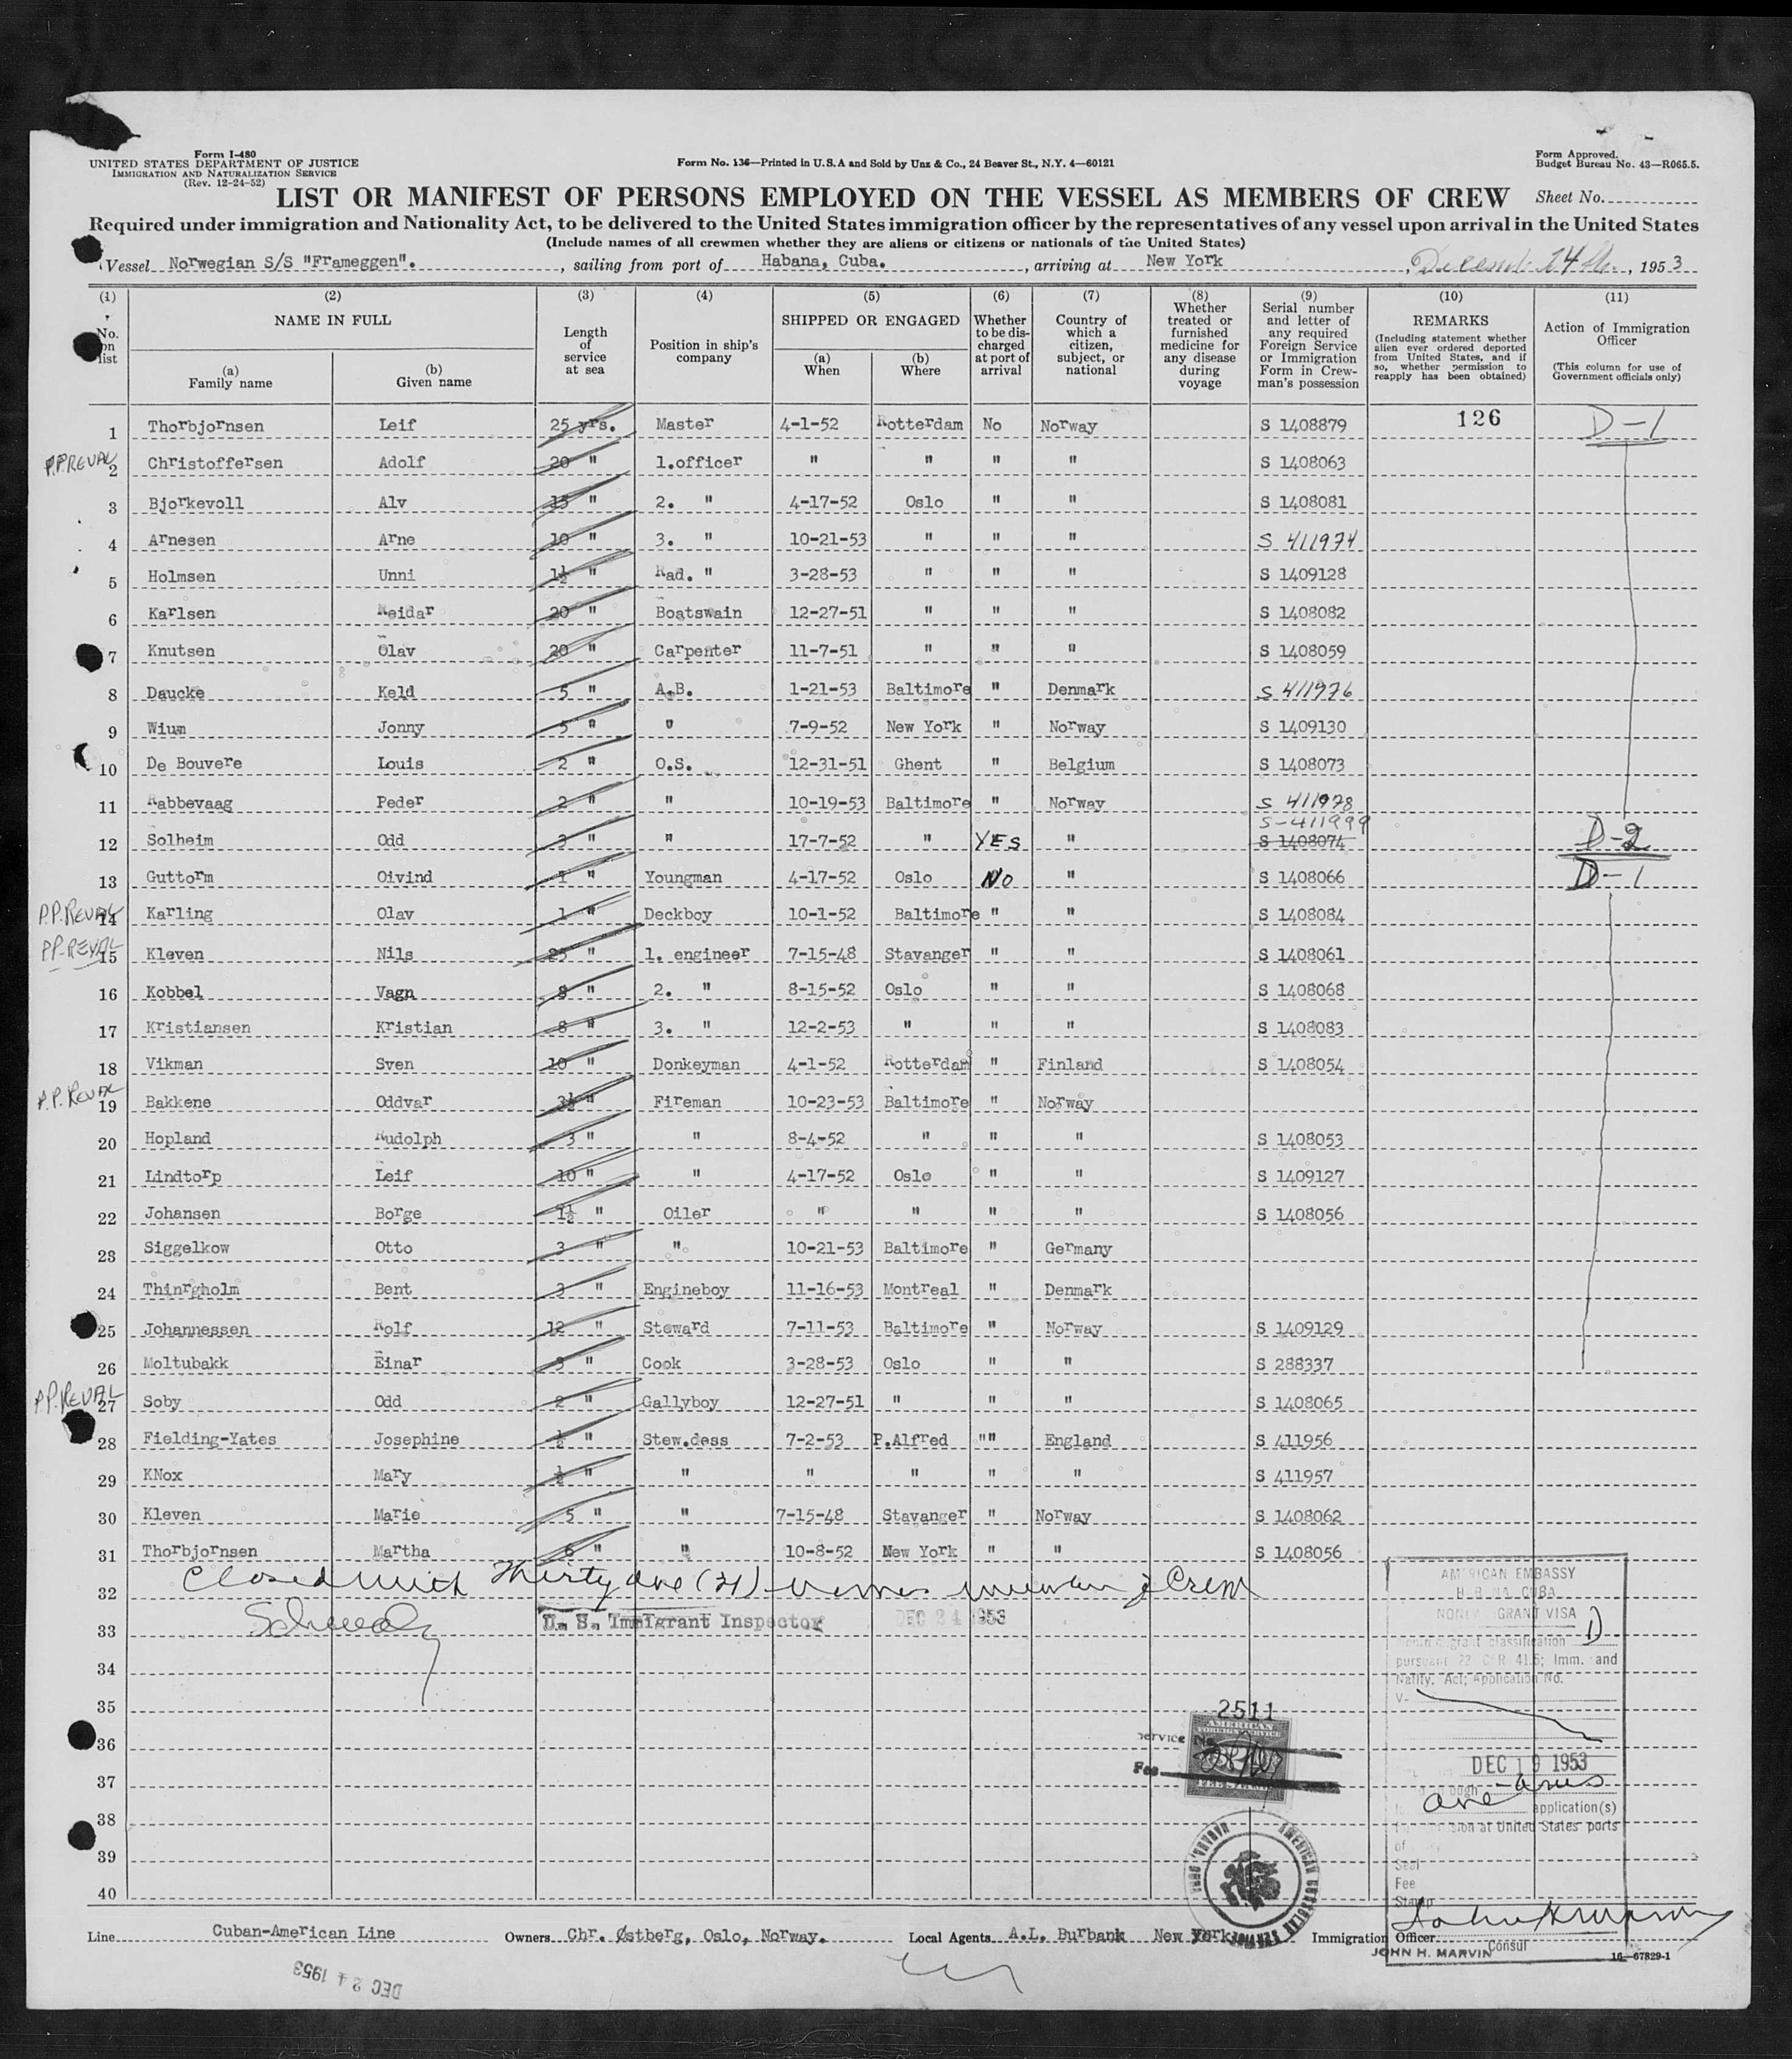 Form I-480
UNITED STATES DEPARTMENT OF JUSTICE
IMMIGRATION AND NATURALIZATION SERVICE
(Rev. 12-24-52)
Form No. 136—Printed in U.S.A and Sold by Unz & Co., 24 Beaver St., N.Y. 4—60121
Form Approved.
Budget Bureau No. 43—R065.5.
LIST OR MANIFEST OF PERSONS EMPLOYED ON THE VESSEL AS MEMBERS OF CREW Sheet No.
Required under immigration and Nationality Act, to be delivered to the United States immigration officer by the representatives of any vessel upon arrival in the United States
(Include names of all crewmen whether they are aliens or citizens or nationals of the United States)
Vessel Norwegian S/S "Frameggen". , sailing from port of Habana, Cuba. , arriving at New York , 24th, 1953
(1) No. on list
(2) NAME IN FULL (a) Family name (b) Given name
(3) Length of service at sea
(4) Position in ship's company
(5) SHIPPED OR ENGAGED (a) When (b) Where
(6) Whether to be discharged at port of arrival
(7) Country of which a citizen, subject, or national
(8) Whether treated or furnished medicine for any disease during voyage
(9) Serial number and letter of any required Foreign Service or Immigration Form in Crewman's possession
(10) REMARKS (Including statement whether alien ever ordered deported from United States, and if so, whether permission to reapply has been obtained)
(11) Action of Immigration Officer (This column for use of Government officials only)
1 Thorbjornsen Leif 25 yrs. Master 4-1-52 Rotterdam No Norway S 1408879 126 D-1
P.P.REVAL 2 Christoffersen Adolf 20 " 1.officer " " " " S 1408063
3 Bjorkevoll Alv 15 " 2. " 4-17-52 Oslo " " S 1408081
4 Arnesen Arne 10 " 3. " 10-21-53 " " " S 411974
5 Holmsen Unni 1½ " Rad. " 3-28-53 " " " S 1409128
6 Karlsen Reidar 20 " Boatswain 12-27-51 " " " S 1408082
7 Knutsen Olav 20 " Carpenter 11-7-51 " " " S 1408059
8 Daucke Keld 5 " A.B. 1-21-53 Baltimore " Denmark S 411976
9 Wium Jonny 5 " " 7-9-52 New York " Norway S 1409130
10 De Bouvere Louis 2 " O.S. 12-31-51 Ghent " Belgium S 1408073
11 Rabbevaag Peder 2 " " 10-19-53 Baltimore " Norway S 411978
12 Solheim Odd 3 " " 17-7-52 " YES " S-411999 S 1408074 D-2
13 Guttorm Oivind 1 " Youngman 4-17-52 Oslo NO " S 1408066 D-1
P.P.REVAL 14 Karling Olav 1 " Deckboy 10-1-52 Baltimore " " S 1408084
PP-REVAL 15 Kleven Nils 25 " 1. engineer 7-15-48 Stavanger " " S 1408061
16 Kobbel Vagn 8 " 2. " 8-15-52 Oslo " " S 1408068
17 Kristiansen Kristian 8 " 3. " 12-2-53 " " " S 1408083
18 Vikman Sven 10 " Donkeyman 4-1-52 Rotterdam " Finland S 1408054
P.P.REVAL 19 Bakkene Oddvar 3½ " Fireman 10-23-53 Baltimore " Norway
20 Hopland Rudolph 3 " " 8-4-52 " " " S 1408053
21 Lindtorp Leif 10 " " 4-17-52 Oslo " " S 1409127
22 Johansen Borge 1½ " Oiler " " " " S 1408056
23 Siggelkow Otto 3 " " 10-21-53 Baltimore " Germany
24 Thinrgholm Bent 3 " Engineboy 11-16-53 Montreal " Denmark
25 Johannessen Rolf 12 " Steward 7-11-53 Baltimore " Norway S 1409129
26 Moltubakk Einar 3 " Cook 3-28-53 Oslo " " S 288337
P.P.REVAL 27 Soby Odd 2 " Gallyboy 12-27-51 " " " S 1408065
28 Fielding-Yates Josephine ½ " Stew.dess 7-2-53 P.Alfred "" England S 411956
29 KNox Mary ½ " " " " " " S 411957
30 Kleven Marie 5 " " 7-15-48 Stavanger " Norway S 1408062
31 Thorbjornsen Martha 6 " " 10-8-52 New York " " S 1408056
32 Closed with Thirty one (31) members of Crew
33 U. S. Immigrant Inspector DEC 24 1953
34
35
36
37
38
39
40
AMERICAN EMBASSY
HABANA, CUBA
NONIMMIGRANT VISA
Nonimmigrant classification D
pursuant 22 CFR 41.5; Imm. and
Natlty. Act; Application No.
V-
DEC 19 1953
one application(s)
admission at United States ports
of
Seal
Fee
Stamp
2511
Service No.
Fee
AMERICAN
FOREIGN SERVICE
AMERICAN CONSULAR SERVICE HABANA, CUBA
Line Cuban-American Line Owners Chr. Østberg, Oslo, Norway. Local Agents A.L. Burbank New York Immigration Officer
JOHN H. MARVIN Consul
16—67829-1
DEC 24 1953